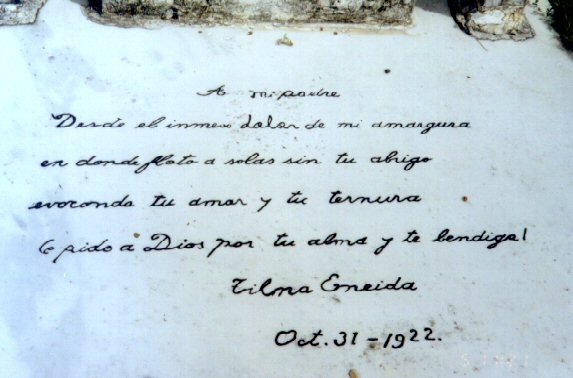 A mi padre
Desde el inmenso dolor de mi amargura
en donde floto a solas sin tu abrigo
evocando tu amor y tu ternura
le pido a Dios por tu alma y te bendigo!
Tilma Eneida
Oct. 31 - 1922.